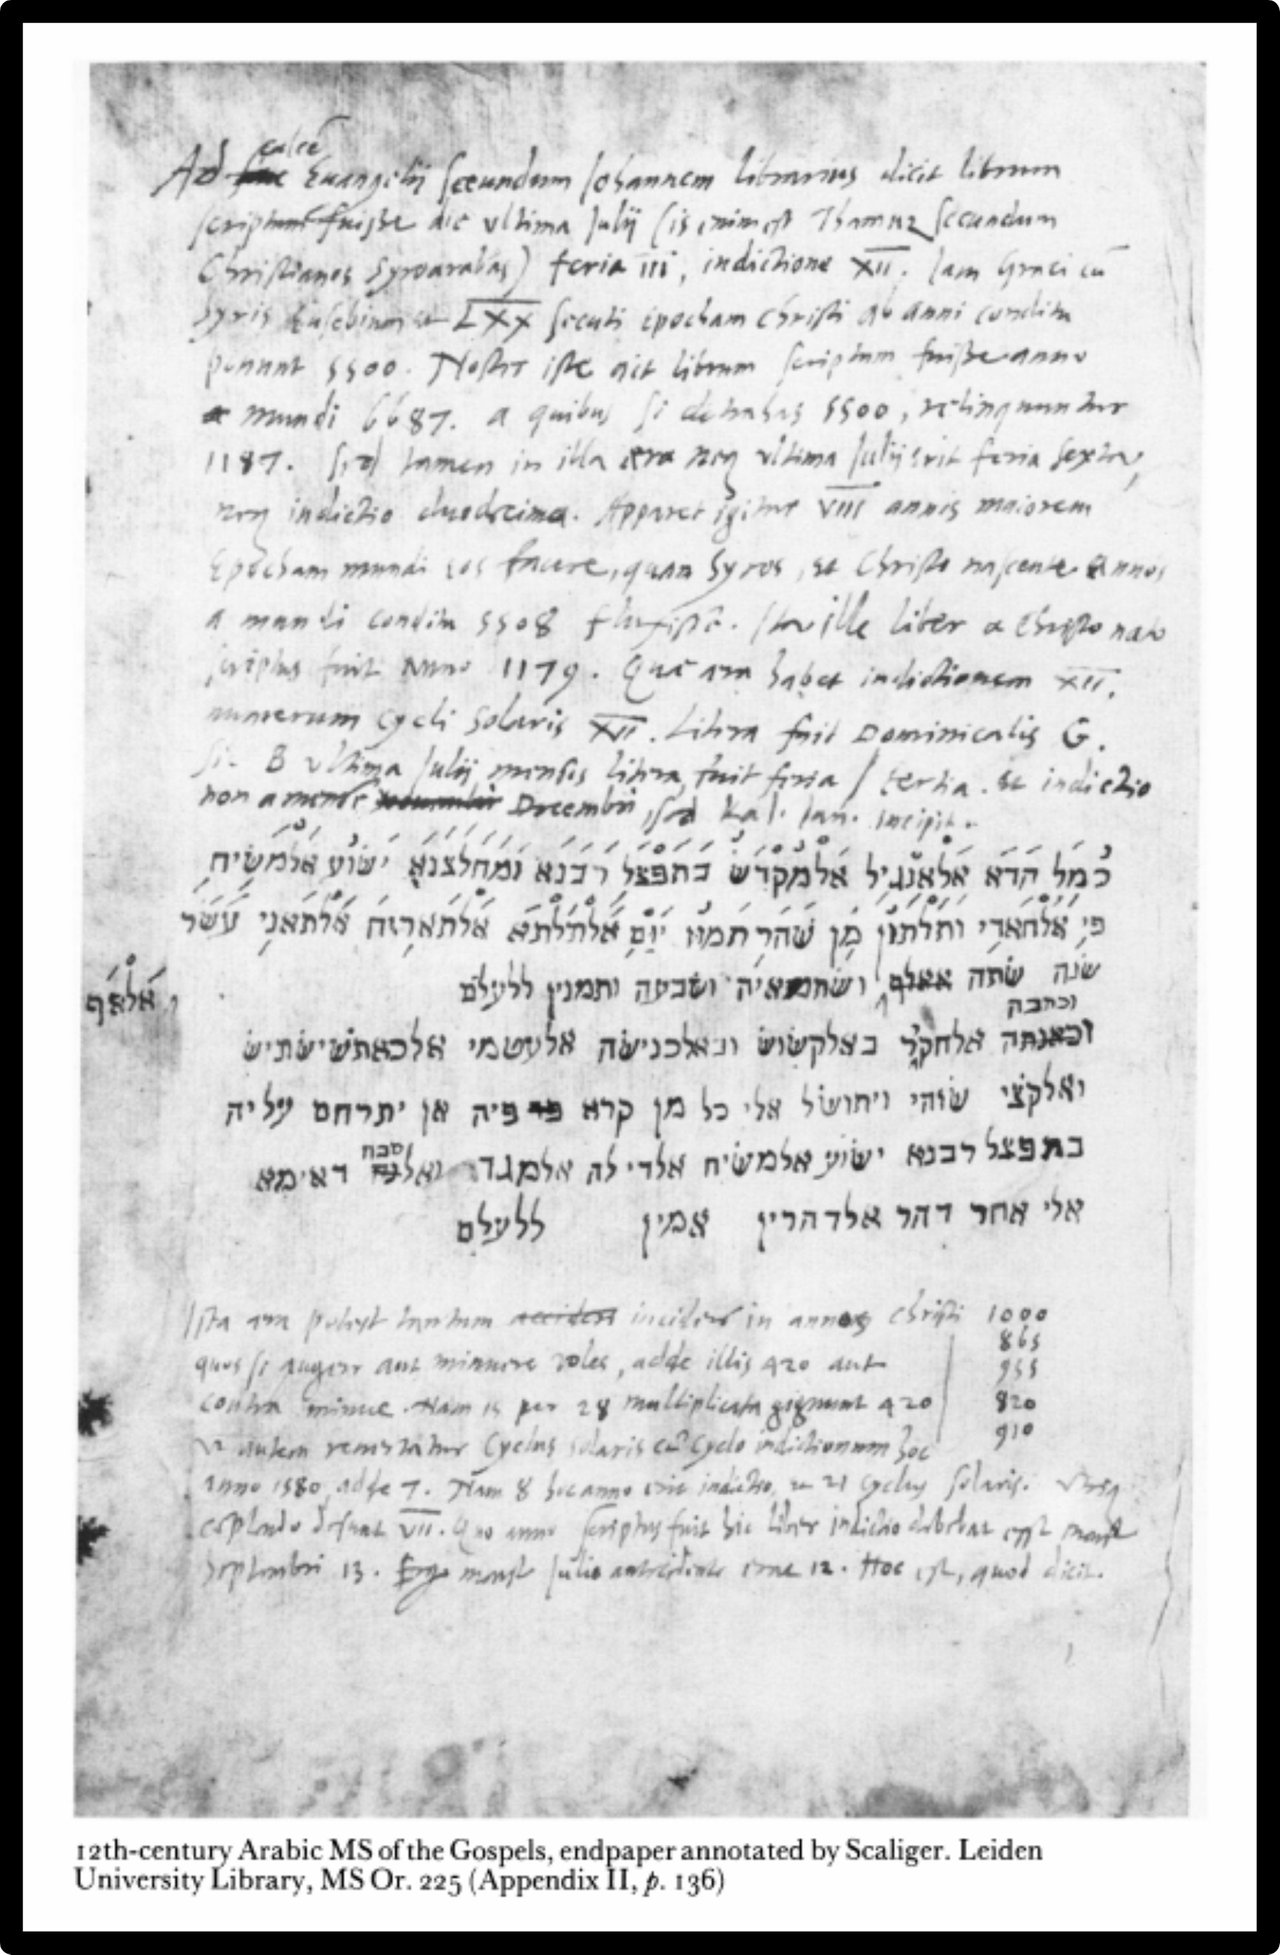 calcē
Ad Euangelij secundum Johannem librarius dicit librum
scriptum fuisse die ultima Julij (is enim est Thamuz secundum
Christianos Syroarabas) feria iii, indictione XII. Iam Graeci cū
Syris Eusebium et LXX secuti epocham Christi ab anni conditu
ponunt 5500. Noster iste ait librum scriptum fuisse anno
mundi 6687. a quibus si detrahas 5500, relinquuntur
1187. Sed tamen in illa era neq ultima Julij erit feria sexta,
neq indictio duodecima. Apparet igitur VIII annis maiorem
Epocham mundi eos facere, quam Syros, et Christo nascente annos
a mundi conditu 5508 fluxisse. Ita ille liber a Christo nato
scriptus fuit anno 1179. Quae aera habet indictionem XII.
numerum cycli Solaris XII. Litera fuit Dominicalis G.
Sic B ultima Julij mensis litera, fuit feria tertia. et indictio
non a mense Decembri, sed Kal. Jan. incipit.
כמל הדא אלאנגיל אלמקדש בתפצל רבנא ומחלצנא ישוע אלמשיח
פי אלחאדי ותלתון מן שהר תמוז יום אלתלתא אלתאריח אלתאני עשר
שנה שתה אאלף ושתמאיה ושבעה ותמנין ללעלם
אלאף
וכתבה
וכאנתה אלחקיר באלקשוש ובאלכנישה אלעטמי אלכאתשישתיש
ואלקצי שזהי ויתושל אלי כל מן קרא פיה אן יתרחם עליה
בתפצל רבנא ישוע אלמשיח אלדי לה אלמגד ואל דאימא
סבח
אלי אחר דהר אלדהרין אמין ללעלם
Ista aera potest tantum accidere incidere in annos Christi 1000
865
quos si augere aut minuere voles, adde illis 420 aut 955
contra minue. Nam 15 per 28 multiplicata gignunt 420 820
910
Ut autem revertatur Cyclus solaris cū cyclo indictionum hoc
anno 1580, adde 7. Nam 8 hoc anno erit indictio, et 21 cyclus Solaris.
desunt VII. Quo anno scriptus fuit hic liber indictio debebat esse mense
Septembri 13. Ergo mense Julio antecedente erat 12. Hoc est, quod dicit.
12th-century Arabic MS of the Gospels, endpaper annotated by Scaliger. Leiden
University Library, MS Or. 225 (Appendix II, p. 136)